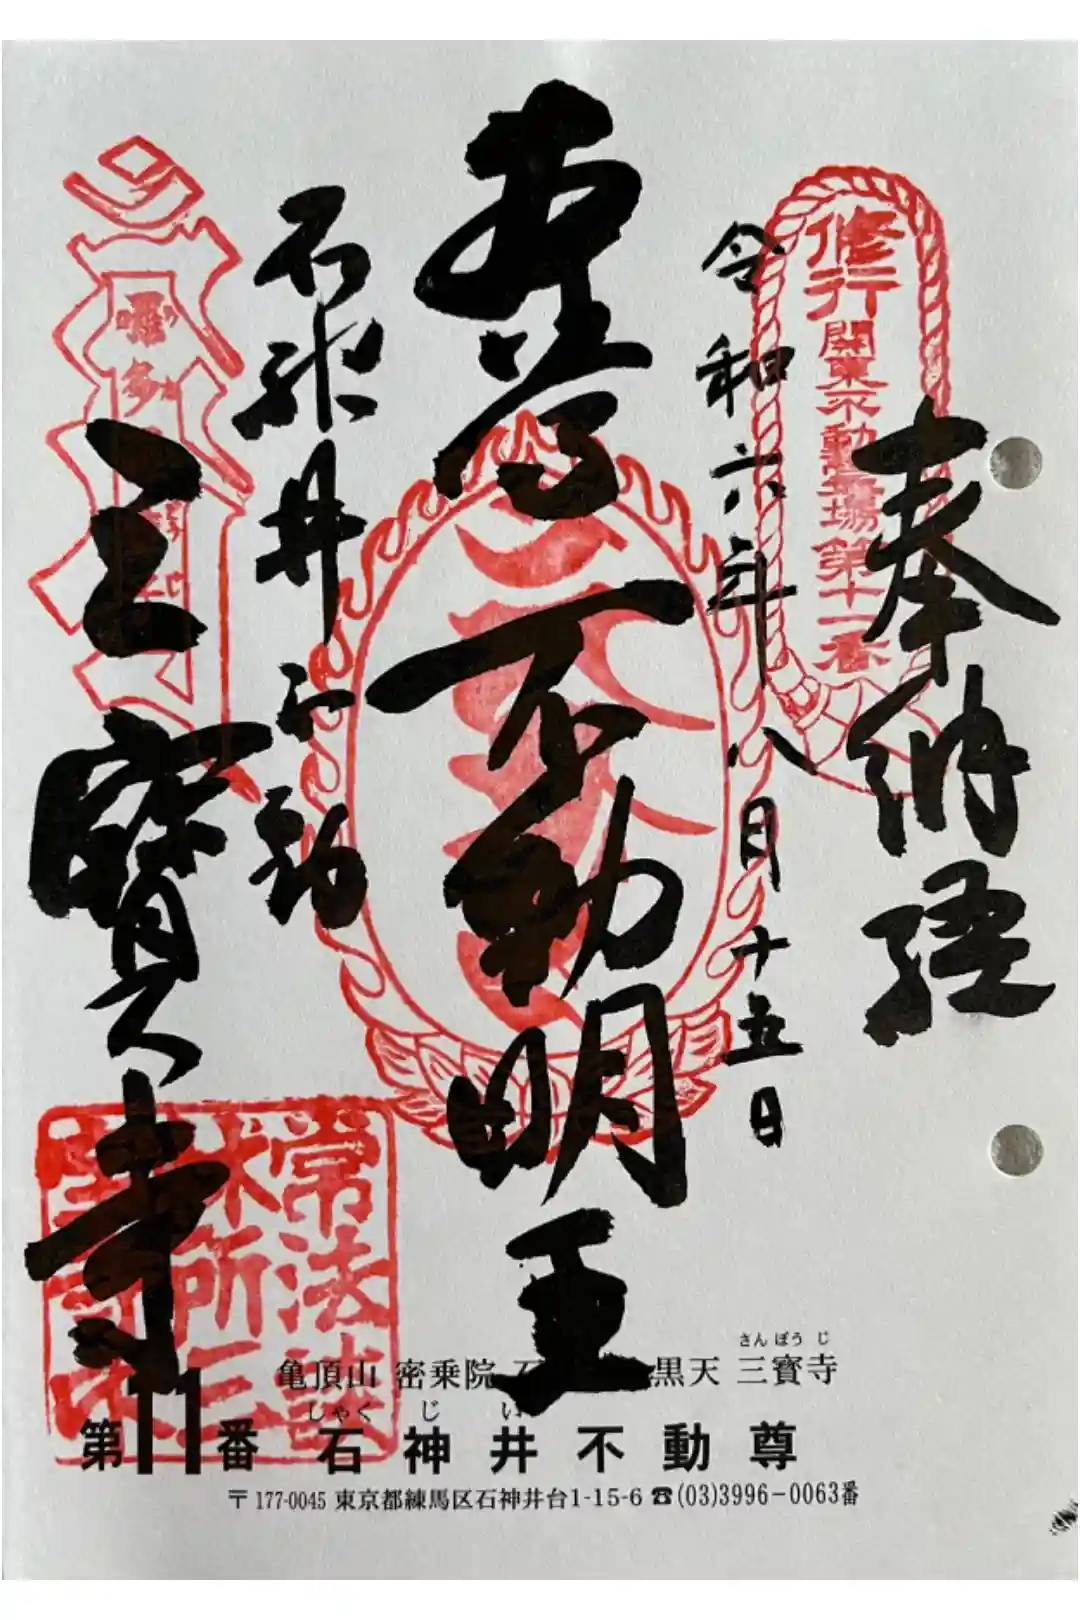 奉納経
修行
関東不動霊場第十一番
令和六年八月十五日
不動明王
石神井不動
三寳寺
常法談
林所
亀頂山 密乗院
黒天 三寳寺
さんぽうじ
しゃくじい
第11番 石神井不動尊
〒177-0045 東京都練馬区石神井台1-15-6 ☎(03)3996-0063番